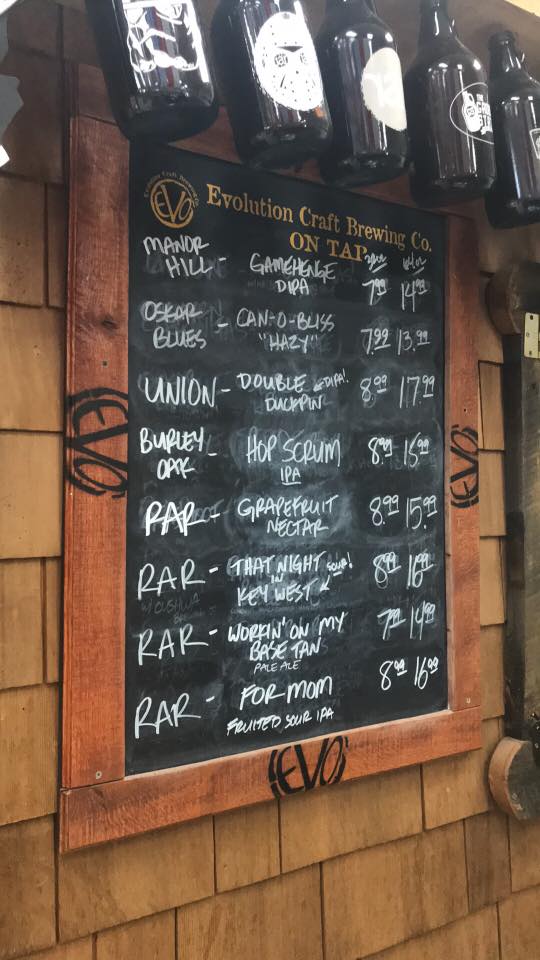 Evolution Craft Brewing Co.
EVO
Evolution Craft Brewing Co.
ON TAP
32oz 64oz
MANOR HILL - GAMEHENGE DIPA 7.99 14.99
OSKAR BLUES - CAN-O-BLISS "HAZY" 7.99 13.99
UNION - DOUBLE DUCKPIN DIPA! 8.99 17.99
BURLEY OAK - HOP SCRUM IPA 8.99 15.99
RAR - GRAPEFRUIT NECTAR 8.99 15.99
RAR - THAT NIGHT IN KEY WEST SOUR! 8.99 16.99
RAR - WORKIN' ON MY BASE TAN PALE ALE 7.99 14.99
RAR - FOR MOM FRUITED SOUR IPA 8.99 16.99
EVO
EVO
EVO